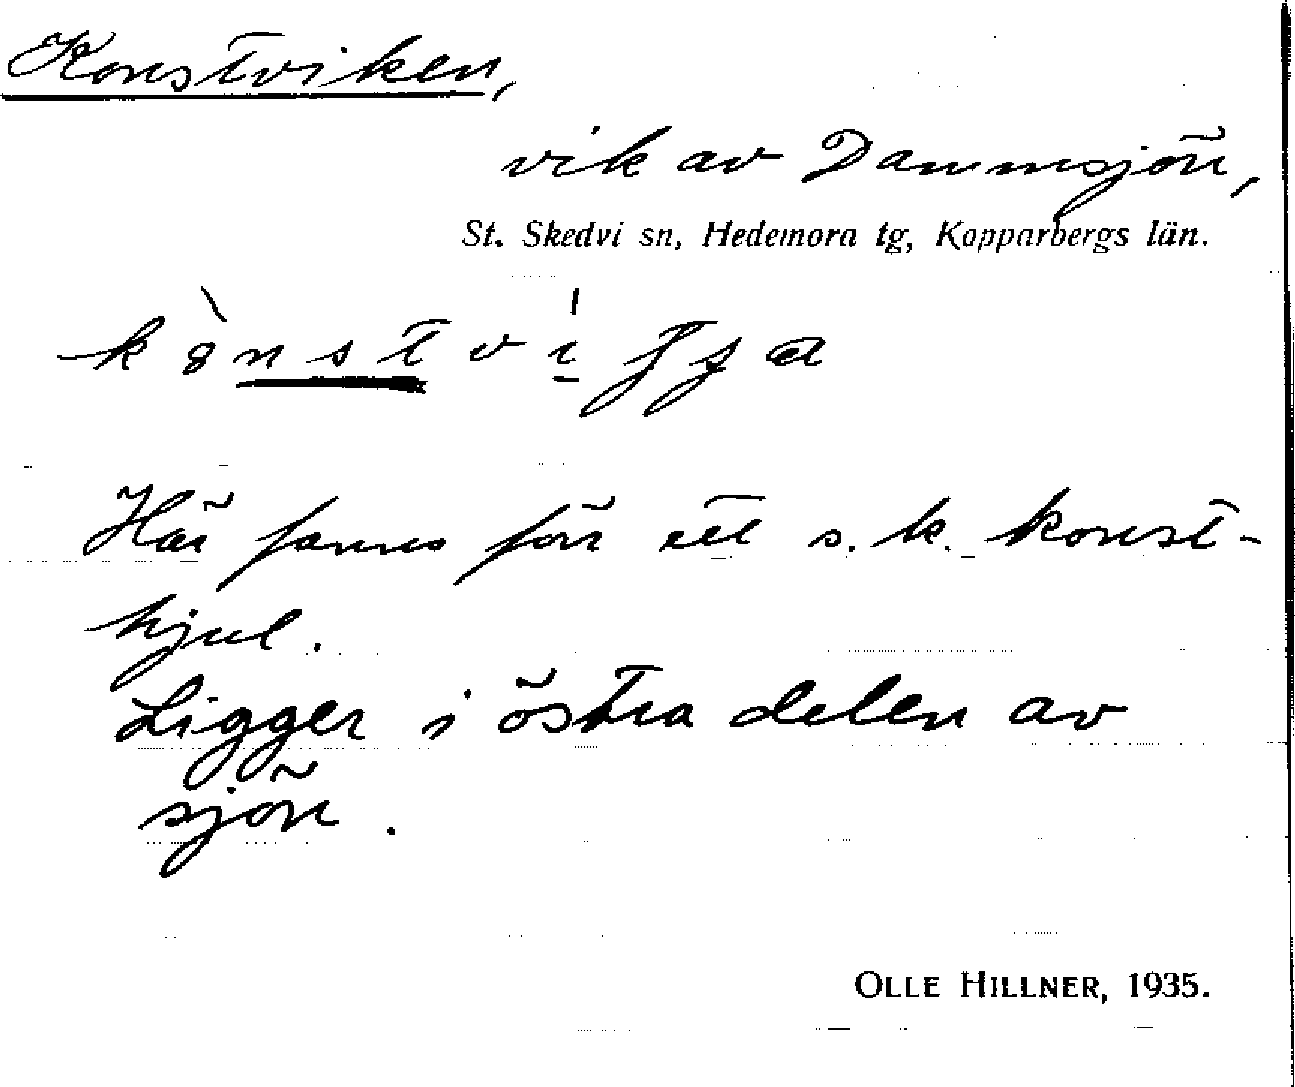 Konstviken,
vik av Dammsjön,
St. Skedvi sn, Hedemora tg, Kopparbergs län.
Här fanns förr ett s. k. konst-
hjul.
Ligger i östra delen av
sjön.
OLLE HILLNER, 1935.